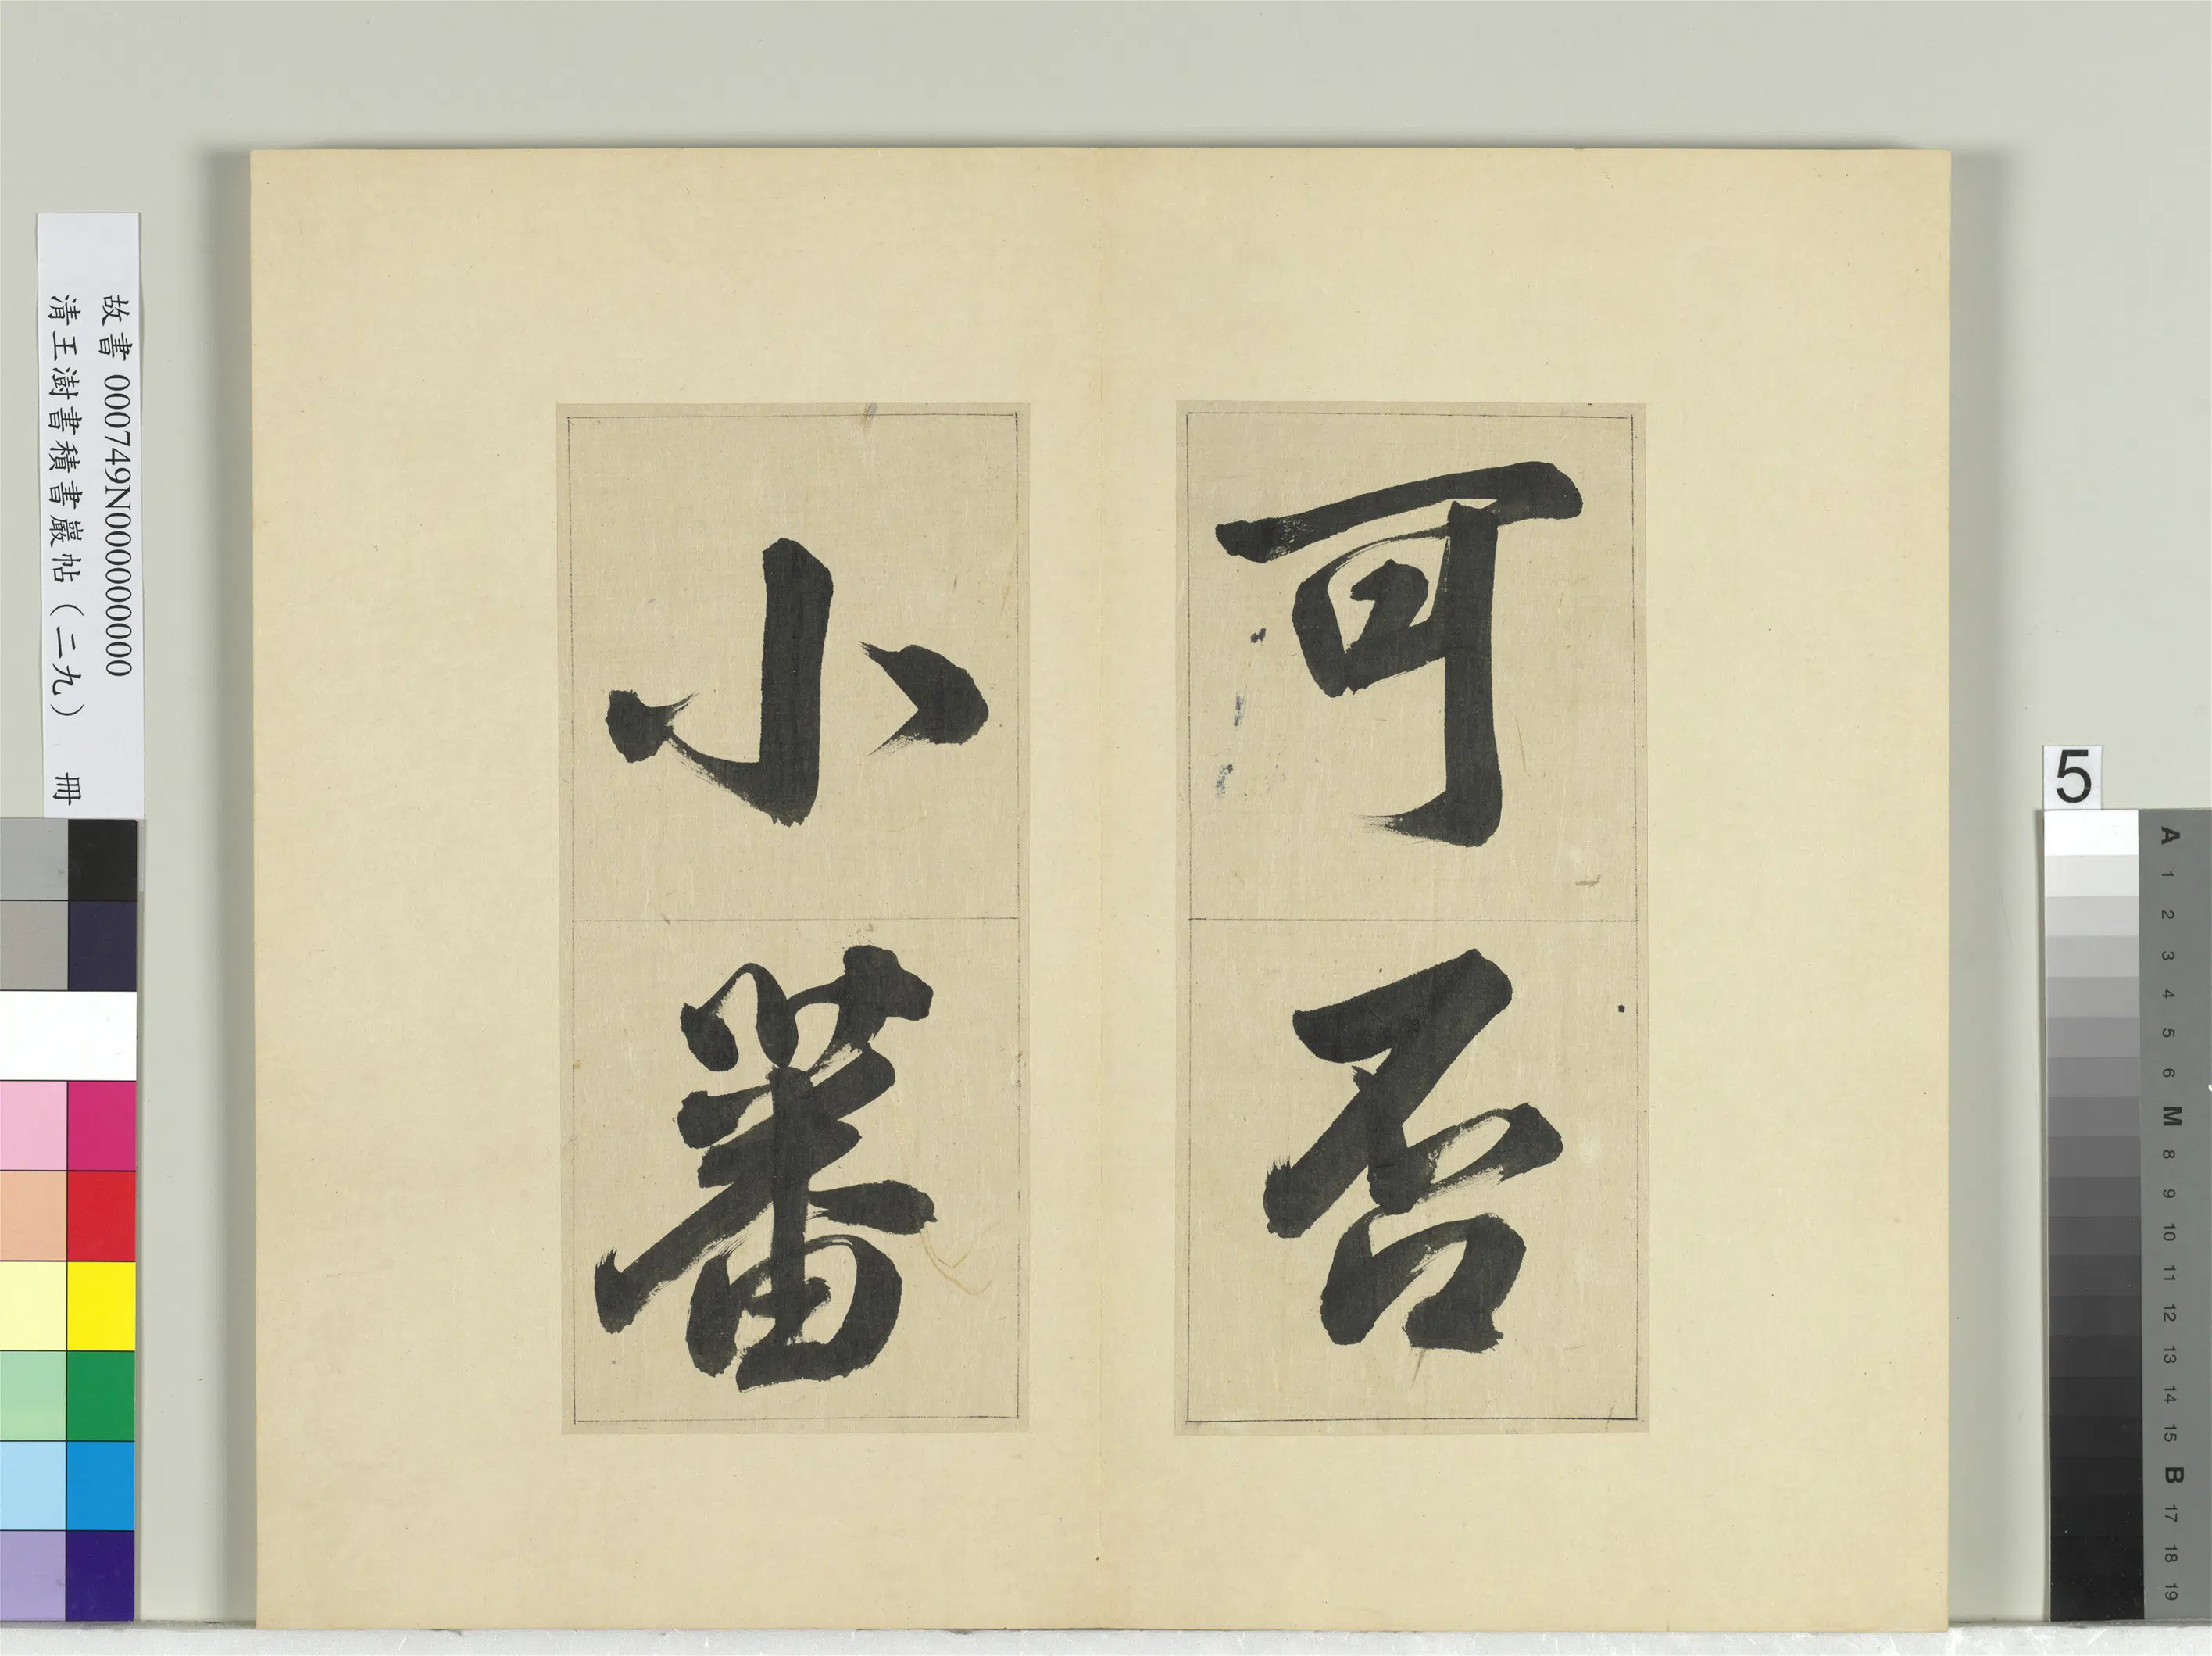 可否
小番
故書 000749N000000000
清王澍書積書巖帖(二九) 冊
5
A 1 2 3 4 5 6 M 8 9 10 11 12 13 14 15 B 17 18 19